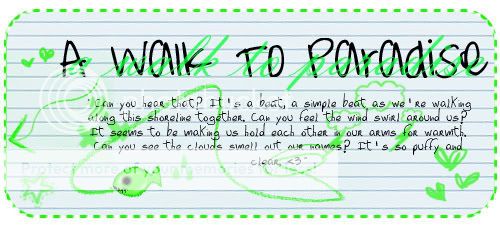 A Walk To Paradise
"Can you hear that? It's a beat, a simple beat as we're walking
along this shoreline together. Can you feel the wind swirl around us?
It seems to be making us hold each other in our arms for warmth.
Can you see the clouds smell out our names? It's so puffy and
clear. <3"
photobucket
Protect more of your memories for less!